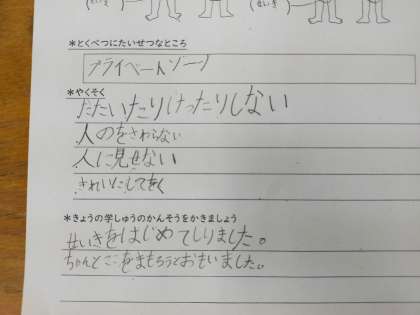 せいき
*とくべつにたいせつなところ
プライベートゾーン
*やくそく
・たたいたりけったりしない
・人のをさわらない
・人に見せない
・きれいにしておく
*きょうの学しゅうのかんそうをかきましょう
せいきをはじめてしりました。
ちゃんとここをまもろうとおもいました。